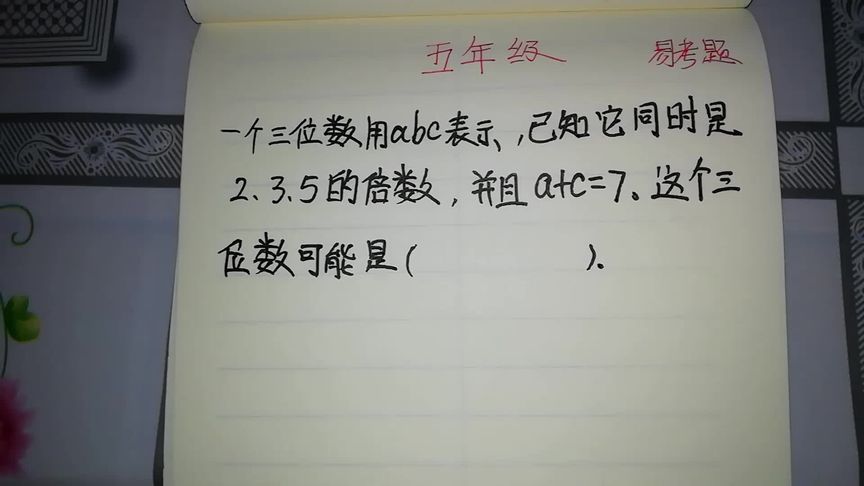 五年级 易考题
一个三位数用abc表示,已知它同时是
2.3.5的倍数,并且a+c=7。这个三
位数可能是( ).